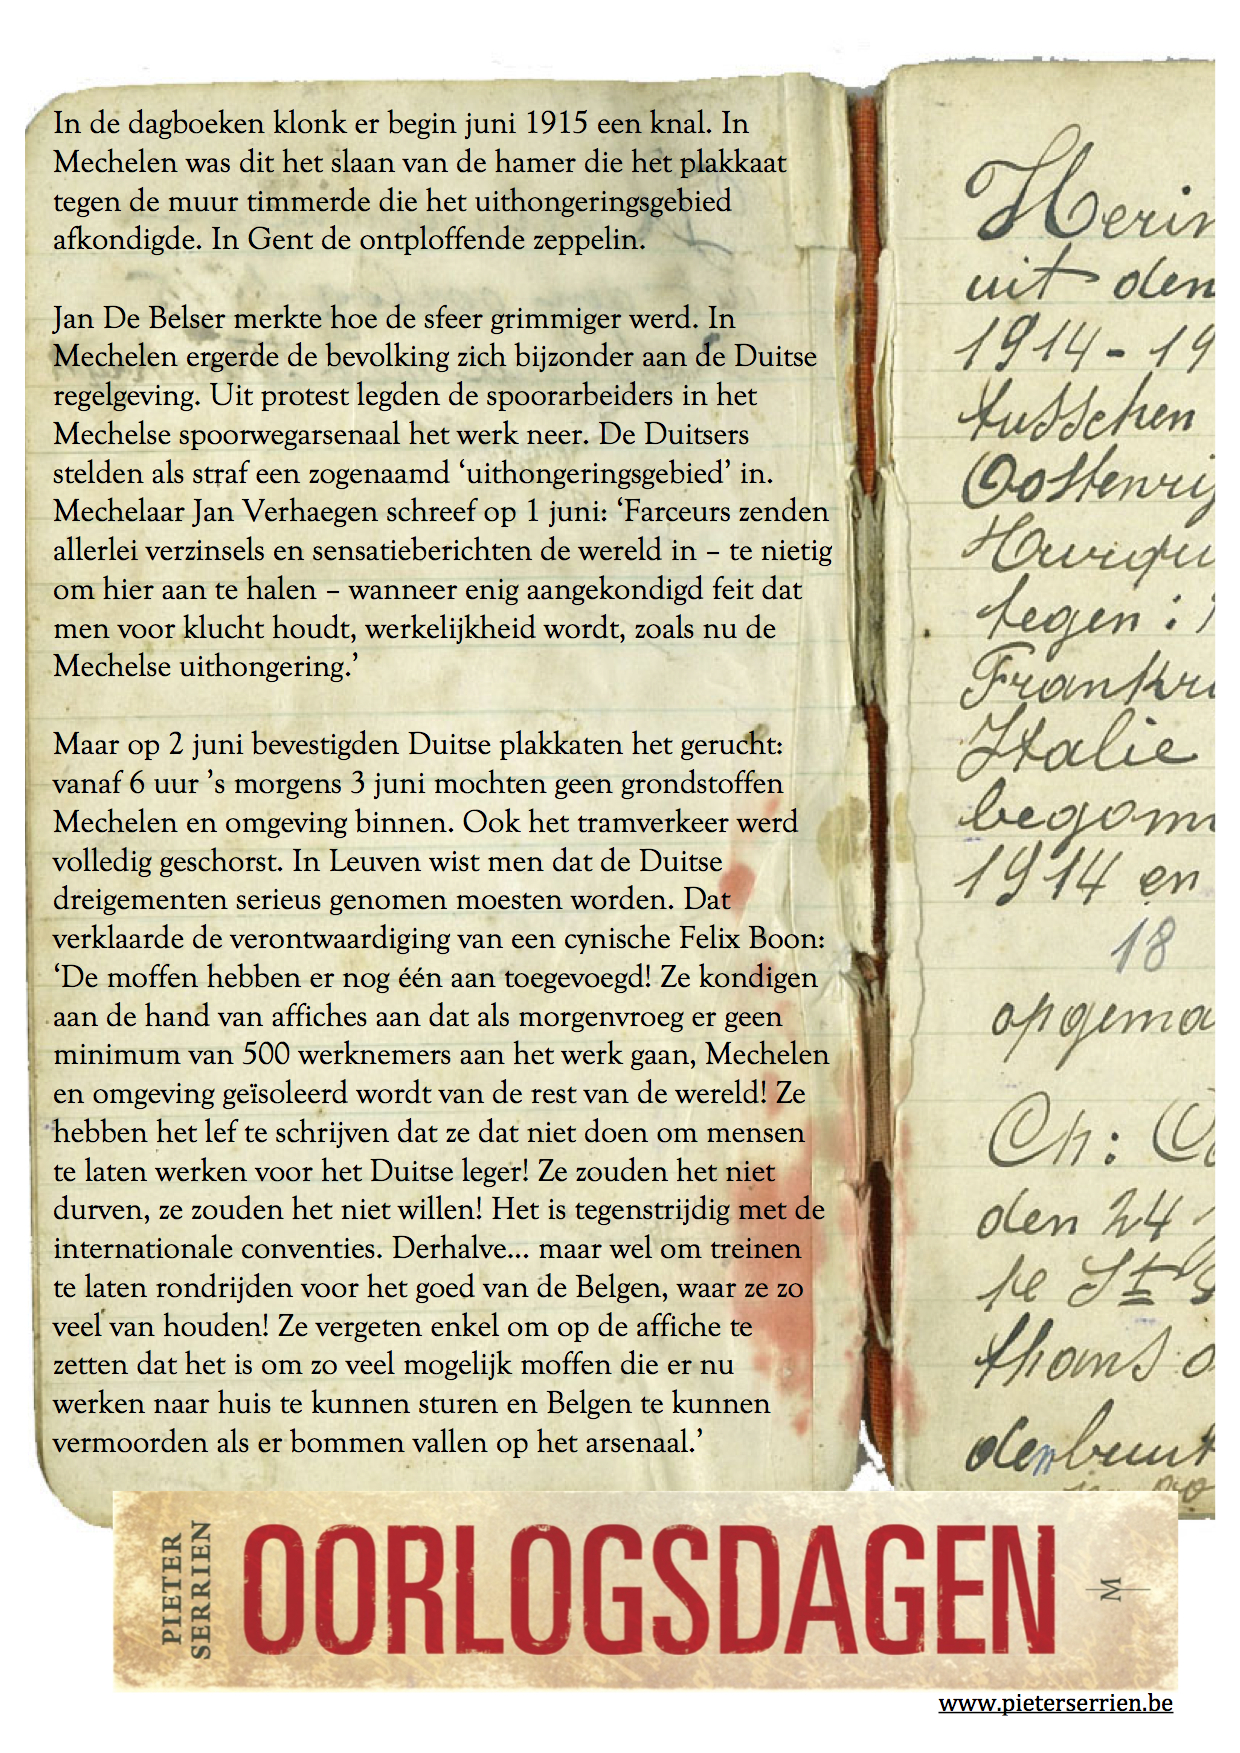 In de dagboeken klonk er begin juni 1915 een knal. In
Mechelen was dit het slaan van de hamer die het plakkaat
tegen de muur timmerde die het uithongeringsgebied
afkondigde. In Gent de ontploffende zeppelin.
Jan De Belser merkte hoe de sfeer grimmiger werd. In
Mechelen ergerde de bevolking zich bijzonder aan de Duitse
regelgeving. Uit protest legden de spoorarbeiders in het
Mechelse spoorwegarsenaal het werk neer. De Duitsers
stelden als straf een zogenaamd ‘uithongeringsgebied’ in.
Mechelaar Jan Verhaegen schreef op 1 juni: ‘Farceurs zenden
allerlei verzinsels en sensatieberichten de wereld in – te nietig
om hier aan te halen – wanneer enig aangekondigd feit dat
men voor klucht houdt, werkelijkheid wordt, zoals nu de
Mechelse uithongering.’
Maar op 2 juni bevestigden Duitse plakkaten het gerucht:
vanaf 6 uur ’s morgens 3 juni mochten geen grondstoffen
Mechelen en omgeving binnen. Ook het tramverkeer werd
volledig geschorst. In Leuven wist men dat de Duitse
dreigementen serieus genomen moesten worden. Dat
verklaarde de verontwaardiging van een cynische Felix Boon:
‘De moffen hebben er nog één aan toegevoegd! Ze kondigen
aan de hand van affiches aan dat als morgenvroeg er geen
minimum van 500 werknemers aan het werk gaan, Mechelen
en omgeving geïsoleerd wordt van de rest van de wereld! Ze
hebben het lef te schrijven dat ze dat niet doen om mensen
te laten werken voor het Duitse leger! Ze zouden het niet
durven, ze zouden het niet willen! Het is tegenstrijdig met de
internationale conventies. Derhalve... maar wel om treinen
te laten rondrijden voor het goed van de Belgen, waar ze zo
veel van houden! Ze vergeten enkel om op de affiche te
zetten dat het is om zo veel mogelijk moffen die er nu
werken naar huis te kunnen sturen en Belgen te kunnen
vermoorden als er bommen vallen op het arsenaal.’
Herin
uit den
1914-19
tusschen
Oostenrij
tegen :
Frankr
Italie
begonn
1914 en
18
opgema
Ch:
den 24
te St
thans
PIETER
SERRIEN
OORLOGSDAGEN
M
www.pieterserrien.be